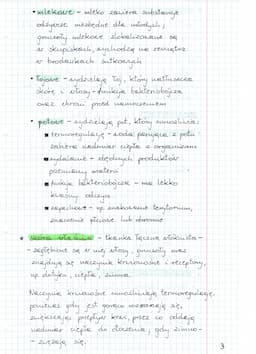 • mlekowe - mleko zawiera substancje
odżywcze niezbędne dla młodych;
gruczoły mlekowe zlokalizowane są
w skupiskach, uchodzą na zewnątrz
w brodawkach sutkowych
• łojowe - wydzielają łój, który natłuszcza
skórę i włosy - funkcja bakteriobójcza
oraz chroni przed namoczeniem
• potowe - wydzielają pot, który umożliwia:
■ termoregulację - woda parująca z potu
zabiera nadmiar ciepła z organizmu
■ wydalanie - zbędnych produktów
przemiany materii
■ funkcja bakteriobójcza - ma lekko
kwaśny odczyn
■ zapachowe - np. znakowanie terytorium,
znaczenie płciowe lub obronne
skóra właściwa - tkanka łączna włóknista -
zagłębione są w niej włosy, gruczoły oraz
znajdują się naczynia krwionośne i receptory,
np. dotyku, ciepła, zimna.
Naczynia krwionośne umożliwiają termoregulację,
ponieważ gdy jest gorąco rozszerzają się,
zwiększając przepływ krwi, przez co oddają
nadmiar ciepła do otoczenia; gdy zimno -
- zwężają się.
3